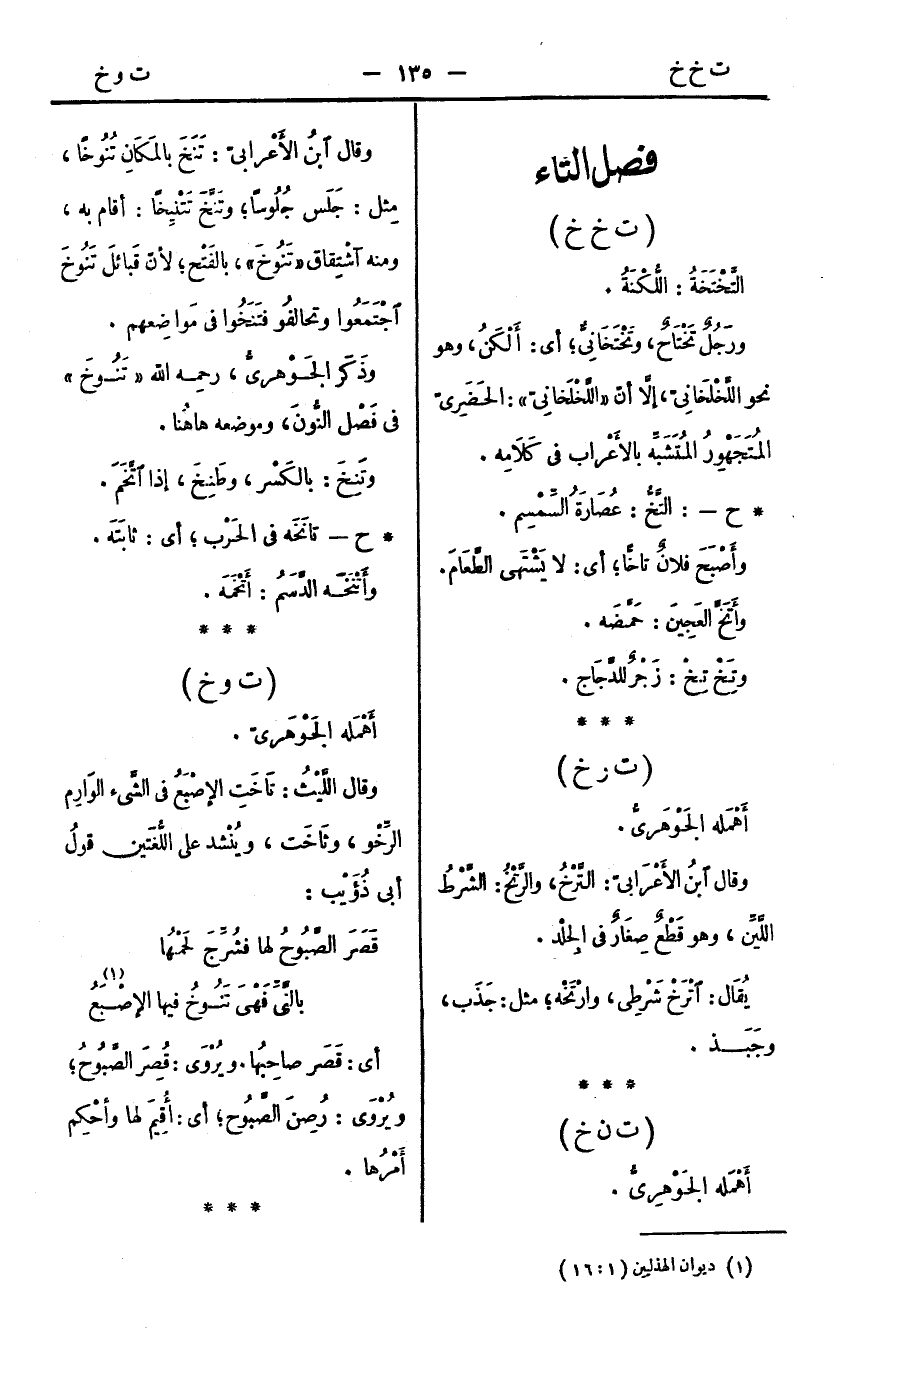 ت خ خ
— ١٣٥ —
ت و خ
فصل التاء
( ت خ خ )
التَّخْتَخَةُ : اللُّكْنَةُ .
ورَجُلٌ تَخْتَاخٌ، وتَخْتَخَانِىٌّ؛ أى: أَلْكَنُ، وهو
نحو اللَّخْلَخانىّ، إلَّا أنّ «اللَّخْلَخانىّ»: الحَضَرِىّ
المُتَجَهْوِرُ المُتَشَبِّه بالأَعْراب فى كَلَامِه .
* ح — : التَّخُّ : عُصَارَةُ السِّمْسِم .
وأَصْبَحَ فلانٌ تاخًّا؛ أى: لا يَشْتَهى الطَّعَامَ.
وأَتَخَّ العَجِينَ : حَمَّضَه .
وتِخْ تِخْ : زَجْرٌ للدَّجَاج .
* * *
( ت ر خ )
أَهْمَله الجَوْهَرىُّ.
وقال ٱبنُ الأَعْرَابىّ: التَّرْخُ، والرَّتْخُ: الشَّرْطُ
اللَّيِّن ، وهو قَطْعٌ صِغارٌ فى الجِلْد .
يُقَال: ٱتْرَخْ شَرْطِى، وارْتَخْه؛ مثل: جَذَب،
وجَبَــذ .
* * *
( ت ن خ )
أَهْمَله الجَوْهَرِىُّ .
وقال ٱبنُ الأَعْرابىّ : تَنَخَ بالمَكَانِ تُنُوخًا ،
مِثل : جَلَس جُلُوسًا؛ وتَنَّخَ تَتْنِيخًا : أقام به ،
ومنه ٱشْتِقاق «تَنُوخَ»، بالفَتْح؛ لأنّ قَبائلَ تَنُوخَ
ٱجْتَمَعُوا وتحالفُو فتَنَخُوا فى مَواضعهم .
وذَكَر الجَوْهَرىُّ ، رحمه الله « تَنُوخَ »
فى فَصْل النُّونَ، وموضعه هاهُنا .
وتَنِخَ : بالكَسْر ، وطَنِخَ ، إذا ٱتَّخَمَ .
* ح — تانَخَه فى الحَرْب ؛ أى : ثابَتَه .
وأَتْنَخَــه الدَّسَمُ : أَتْخَمَه .
* * *
( ت و خ )
أَهْمَله الجَوْهَرىّ .
وقال اللَّيْثُ : تَاخَتِ الإصْبَعُ فى الشَّىء الوَارِم
الرِّخْو ، وثَاخَت ، ويُنْشد على اللُّغَتين قولُ
أبى ذُؤَيْب :
قَصَرَ الصَّبُوحُ لها فشُرِّجَ لَحْمُها
بالنَّىِّ فَهْىَ تَتُوخُ فيها الإصْبَعُ (١)
أى : قَصَر صاحبُها. ويُرْوَى : قُصِرَ الصَّبُوحُ؛
ويُرْوَى : رُصِنَ الصَّبُوح؛ أى: أُقِيمَ لها وأحْكِم
أَمْرُها .
* * *
(١) ديوان الهذليين (١ : ١٦)